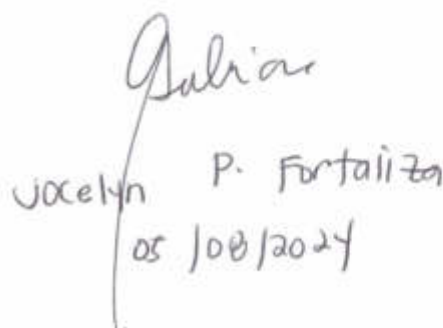 Jocelyn P. Fortaliza
05/08/2024